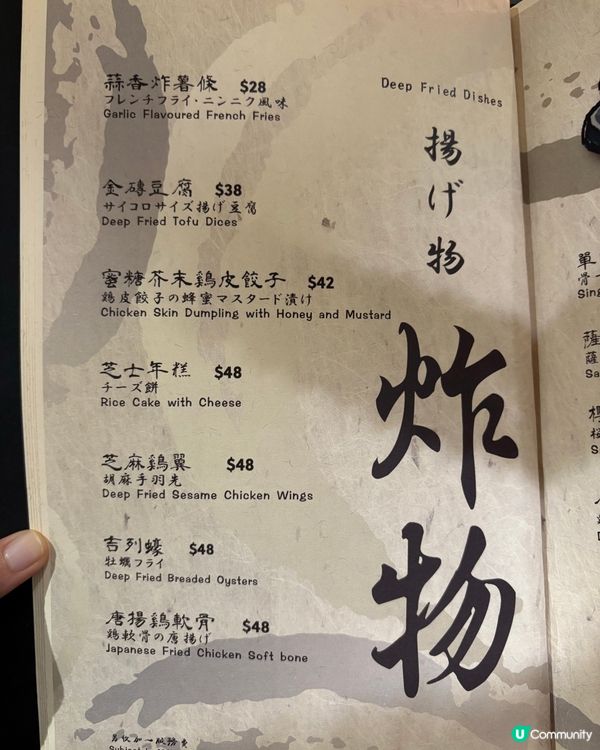 Deep Fried Dishes
揚げ物
炸物
蒜香炸薯條 $28
フレンチフライ・ニンニク風味
Garlic Flavoured French Fries
金磚豆腐 $38
サイコロサイズ揚げ豆腐
Deep Fried Tofu Dices
蜜糖芥末鷄皮餃子 $42
鶏皮餃子の蜂蜜マスタード漬け
Chicken Skin Dumpling with Honey and Mustard
芝士年糕 $48
チーズ餅
Rice Cake with Cheese
芝麻鷄翼 $48
胡麻手羽先
Deep Fried Sesame Chicken Wings
吉列蠔 $48
牡蠣フライ
Deep Fried Breaded Oysters
唐揚鷄軟骨 $48
鶏軟骨の唐揚げ
Japanese Fried Chicken Soft bone
另收加一服務費
單
骨
Sing
薩
薩
Sa
U Community